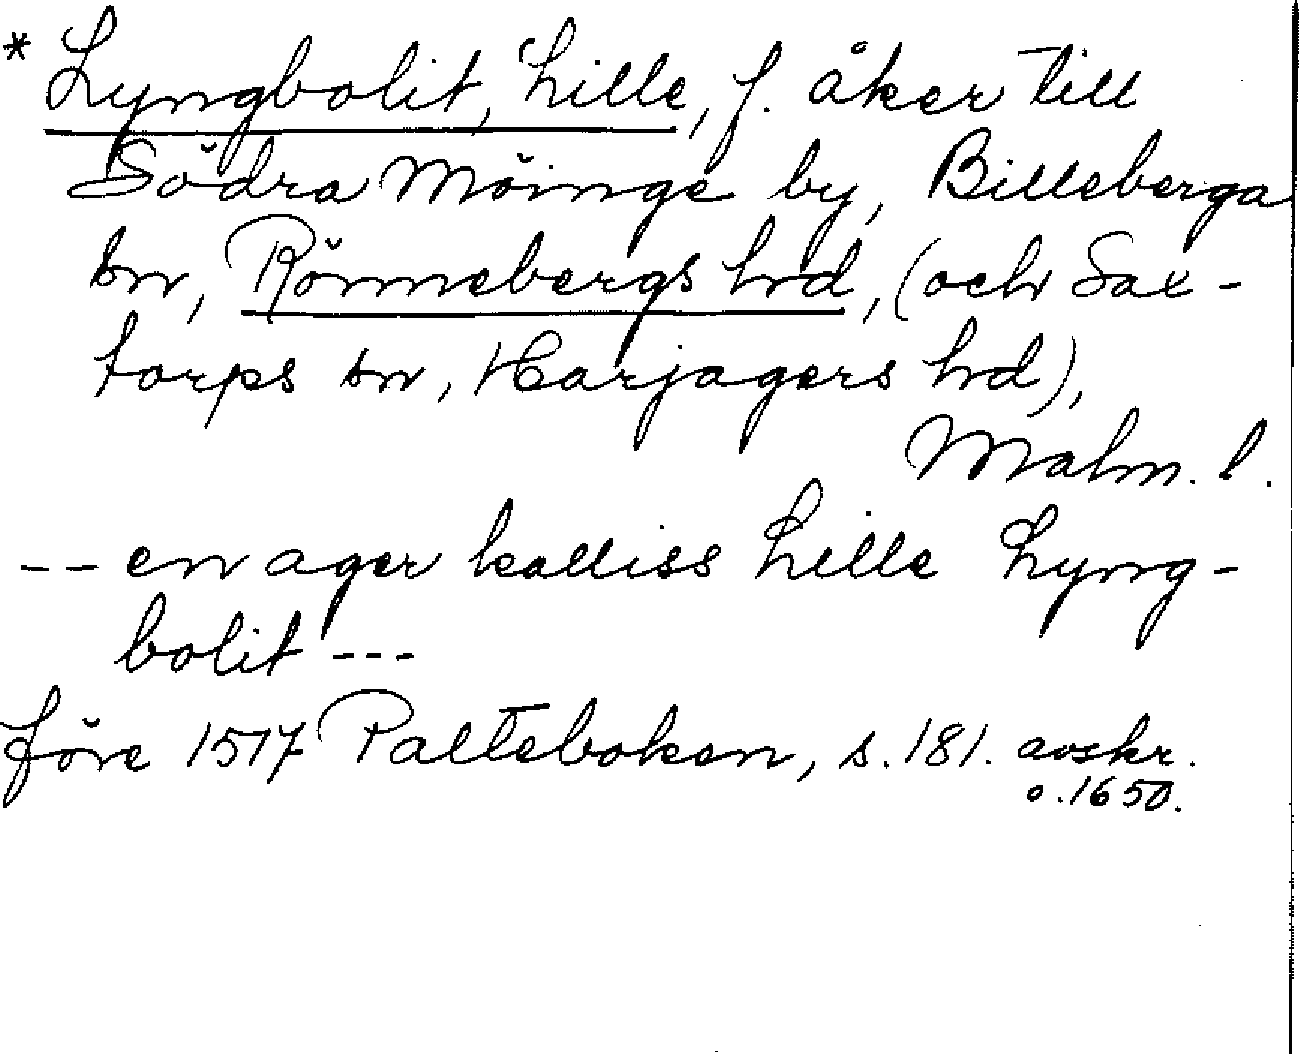 * Lyngbolit, Lille, f. åker till
Södra Möinge by, Billeberga
sn, Rönnebergs hrd, (och Sax-
torps sn, Harjagers hrd),
Malm. l.
-- en ager kalliss Lille Lyng-
bolit ---
före 1517 Palteboken, s. 181. avskr.
o. 1650.